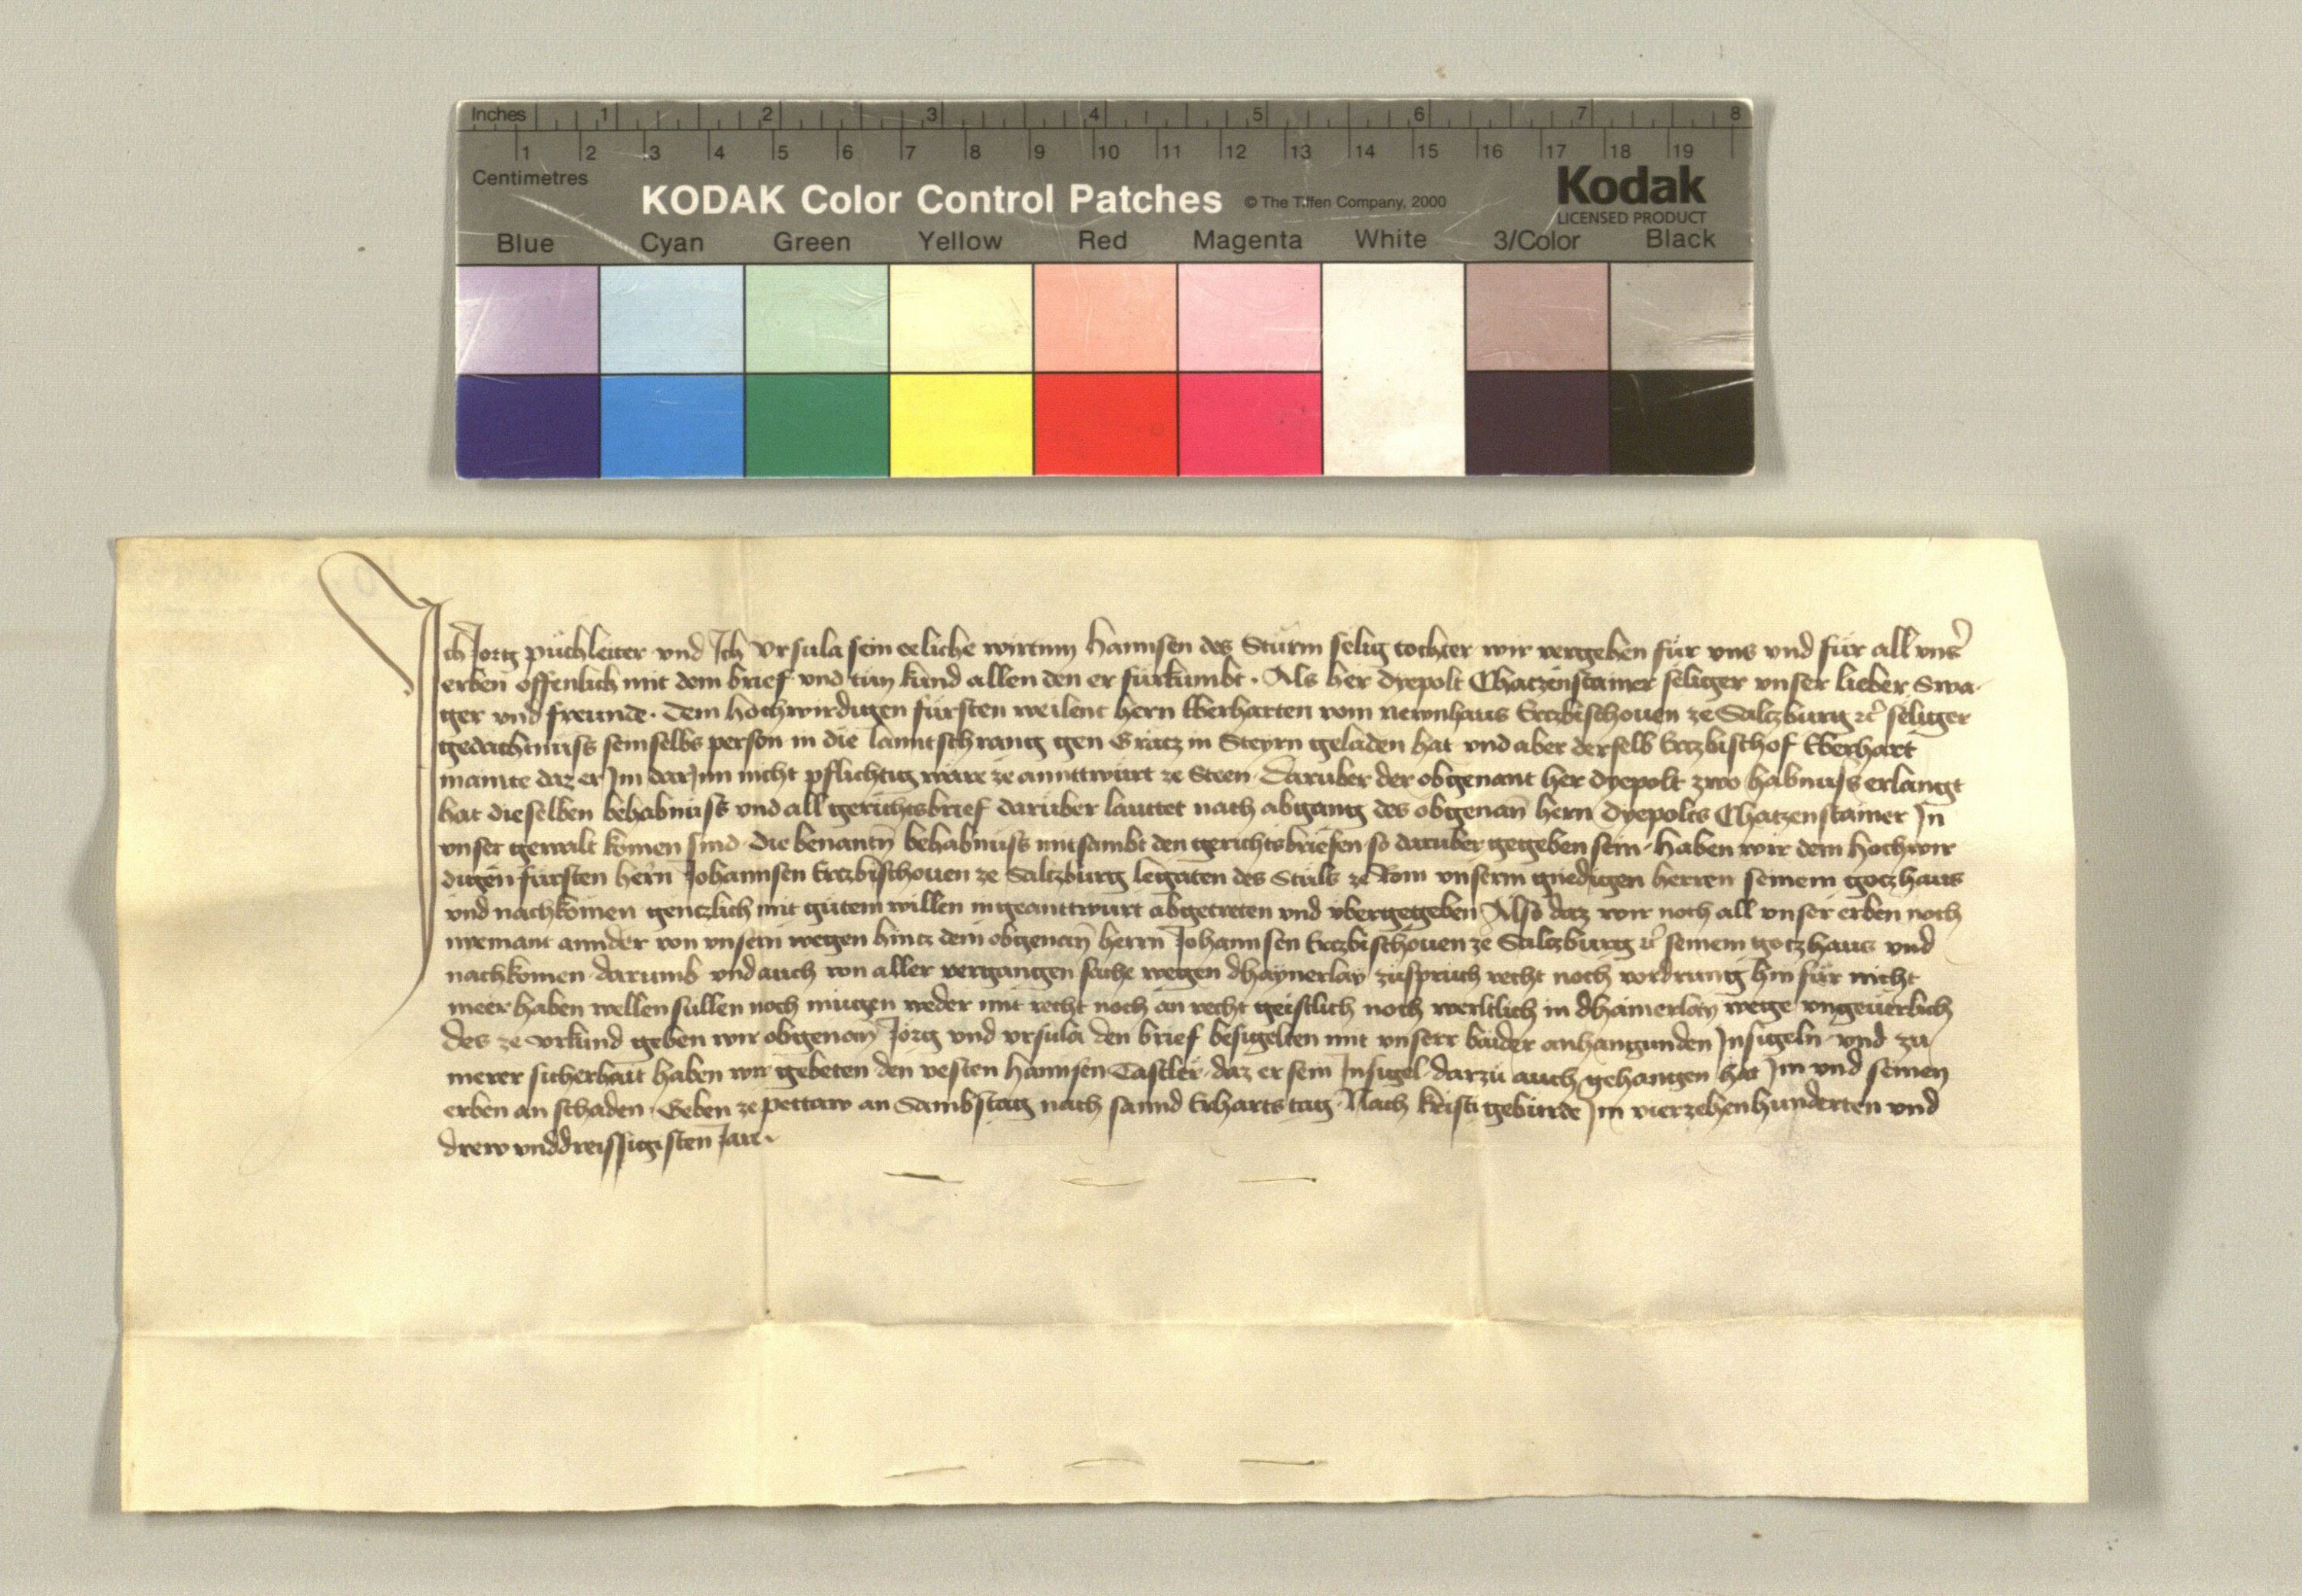 Inches 1 2 3 4 5 6 7 8
1 2 3 4 5 6 7 8 9 10 11 12 13 14 15 16 17 18 19
Centimetres
KODAK Color Control Patches © The Tiffen Company, 2000 Kodak
LICENSED PRODUCT
Blue Cyan Green Yellow Red Magenta White 3/Color Black
Ich Jorg püchleiter vnd Ich Vrsula sein eeliche wirtinn hannsen des Stürm selig tochter wir vergehen für vns vnd für all vns̉
erben offenlich mit dem brief vnd tün kund allen den er fürkumbt · Als her dyepolt Chatzenstainer seliger vnser lieber Swa-
ger vnd freunde · dem hochwirdigen fürsten weilent hern Eberharten vom newnhaus Ertzbischouen ze Saltzburg ꝛc̉ seliger
gedachtnüss seinselbs person in die lanntschrang gen Grätz in Steyrn geladen hat vnd aber derselb Ertzbischof Eberhart
mainte daz er Im darInn nicht pflichtig wäre ze annttwürt ze Steen · darüber der obgenant her dyepolt zwo habnuss erlangt
hat dieselben behabnüss vnd all gerichtsbrief darüber lauttet nach abgang des obgenan̄ hern dyepolts Chatzenstainer In
vnser gewalt komen sind · die benantn̄ behabnüss mitsambt den gerichtsbriefen so darüber gegeben sein · haben wir dem hochwir
digen fürsten hern̄ Johannsen Ertzbischouen ze Saltzburg legaten des Stüls ze Rom vnserm gnedigen herren seinem gotzhaus
vnd nachkomen gentzlich mit gütem willen ingeanttwürt abgetreten vnd vbergegeben Also daz wir noch all vnser erben noch
niemant annder von vnsern wegen hintz dem obgenan̄ herrn Johannsen Ertzbischouen ze Saltzburg ꝛc̉ seinem gotzhaus vnd
nachkomen darumb vnd auch von aller vergangen sache wegen dhaynerlay züspruch recht noch vordrung hinfür nicht
meer haben wellen süllen noch mügen weder mit recht noch an recht geistlich noch werltlich in dhainerlay wege vngeuerlich
des ze vrkünd geben wir obgenan̄ Jörg vnd vrsula den brief besigelten mit vnserr baider anhangunden Insigeln vnd zu
merer sicherhait haben wir gebeten den vesten hannsen Tastler daz er sein Insigel darzü auch gehangen hat Im vnd seinen
erben an schaden · Geben ze pettaw an Sambstag nach sannd Erharts tag · Nach kristi gebürde Im vierzehenhunderten vnd
drew vnddreissigisten Jar ·